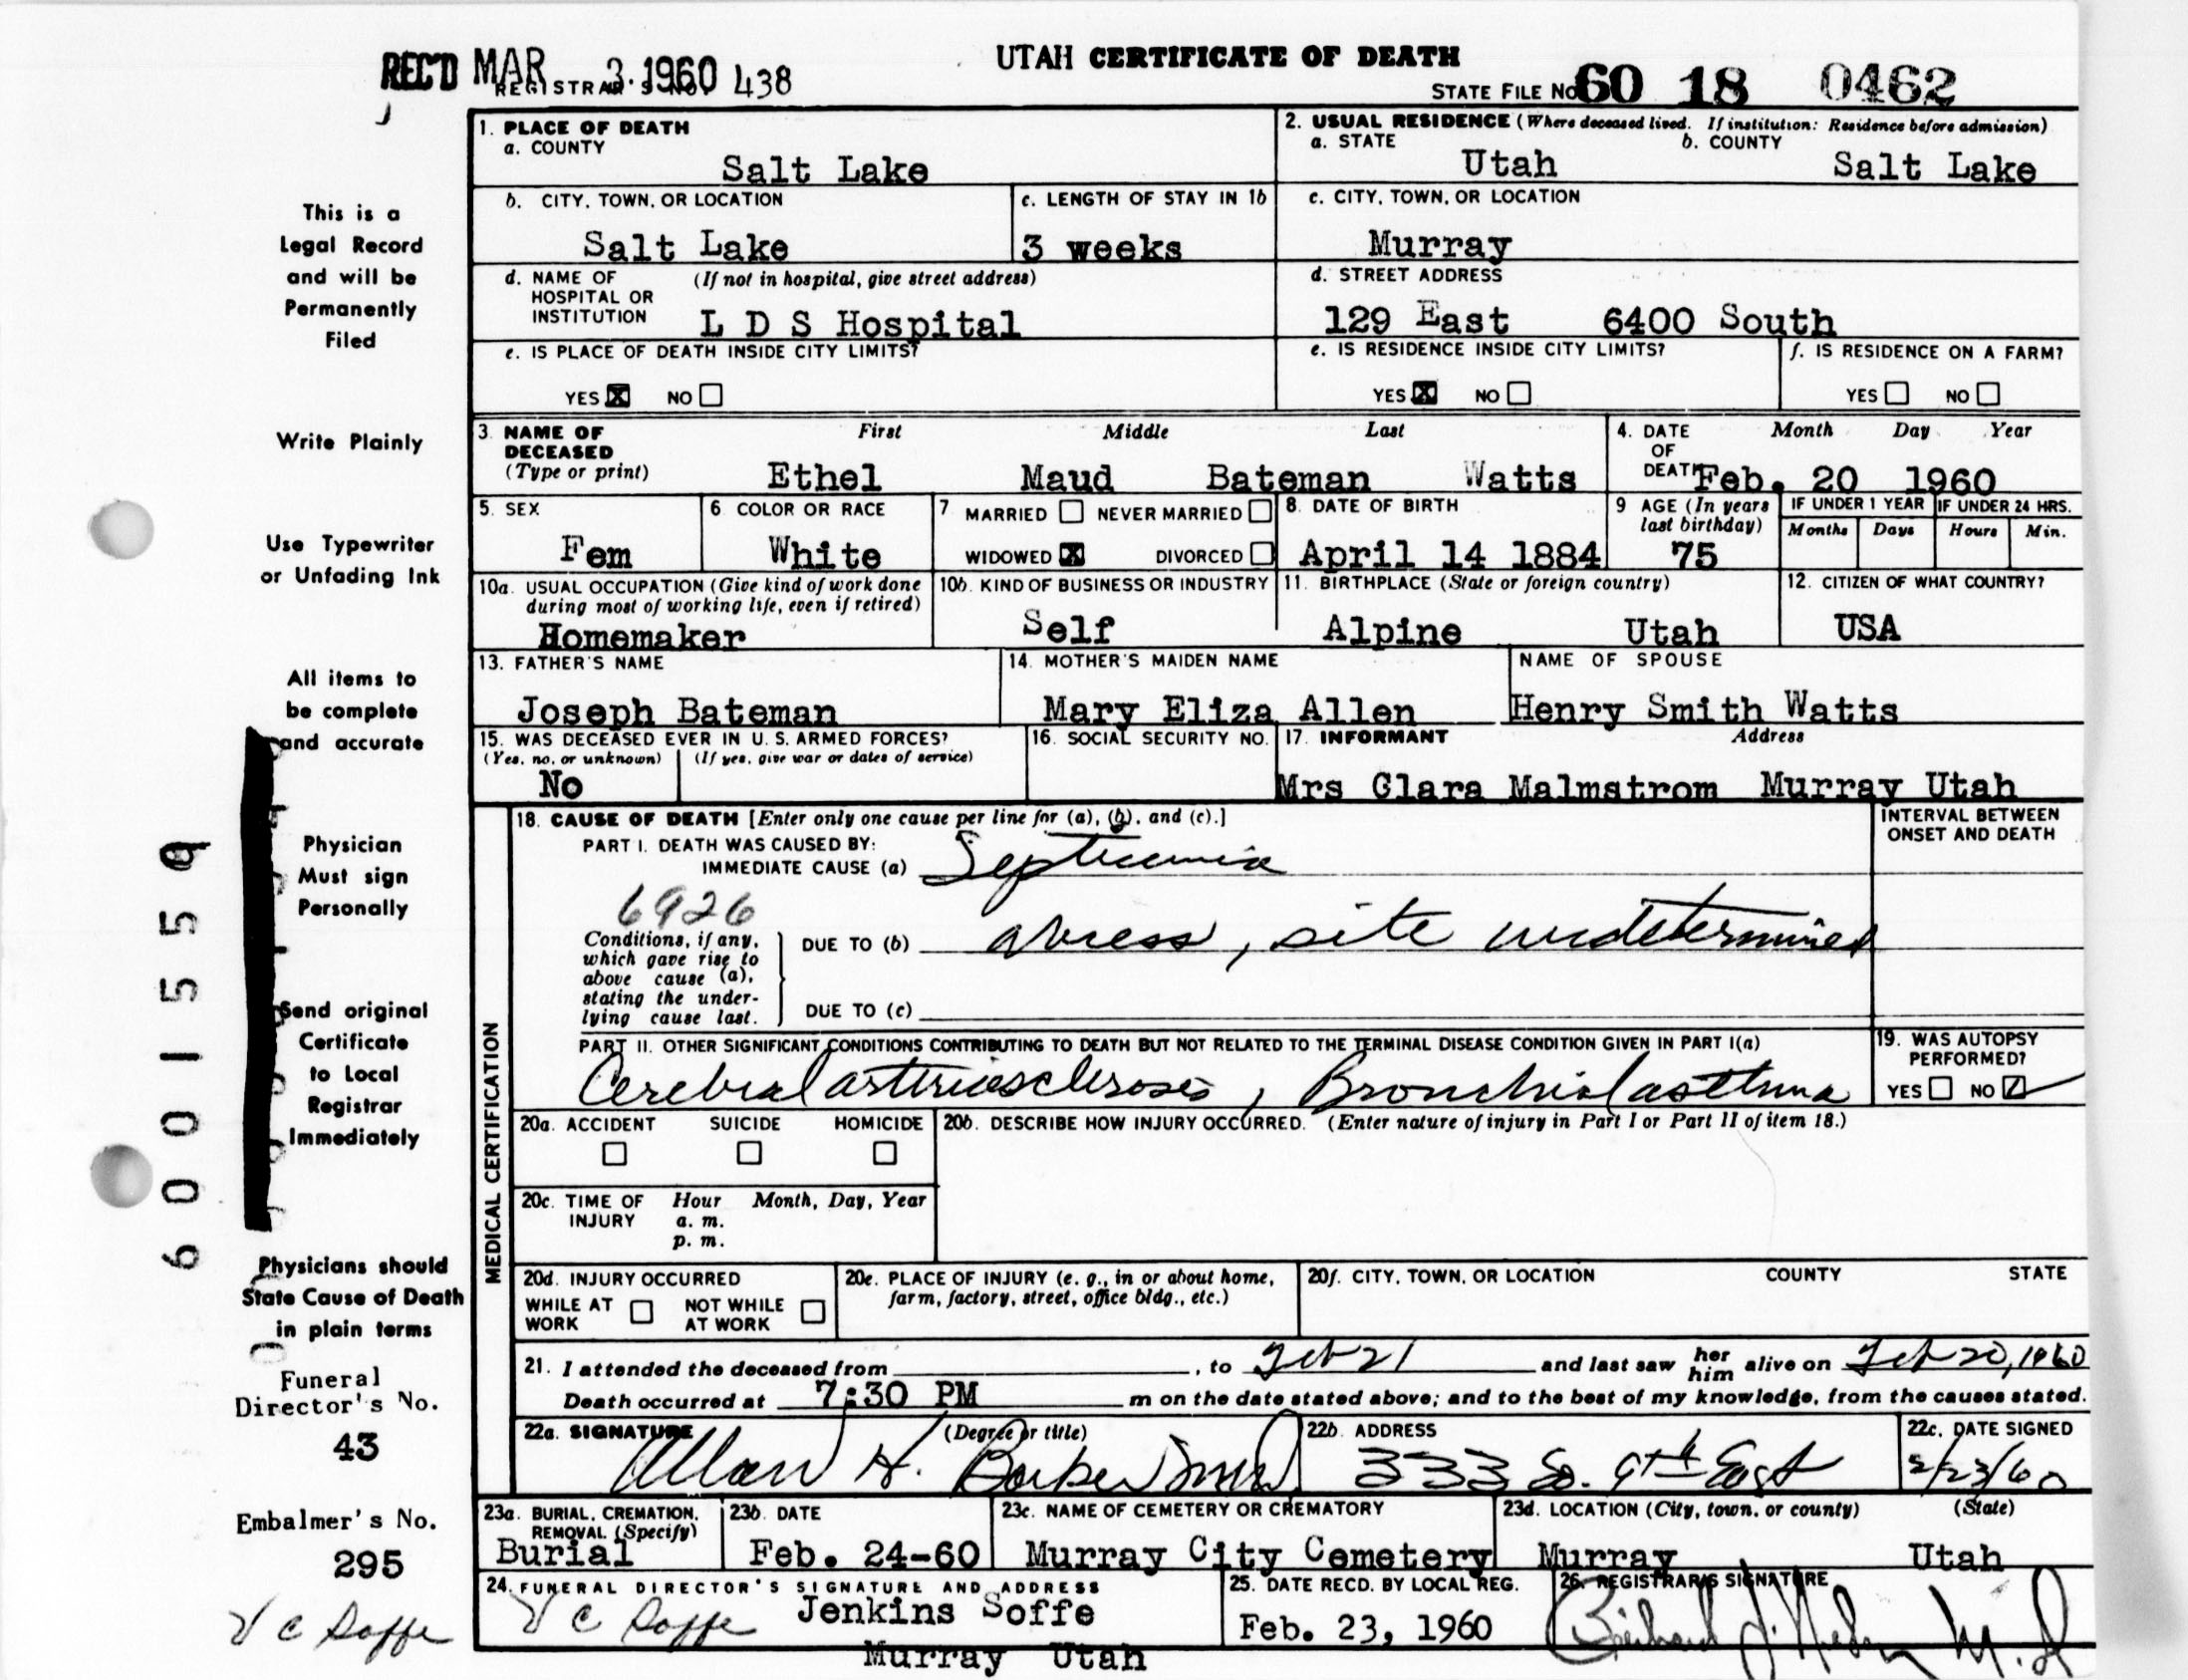 REC'D MAR 3 1960 438
REGISTRAR'S NO.
UTAH CERTIFICATE OF DEATH
STATE FILE No 60 18 0462
This is a
Legal Record
and will be
Permanently
Filed
Write Plainly
Use Typewriter
or Unfading Ink
All items to
be complete
and accurate
Physician
Must sign
Personally
Send original
Certificate
to Local
Registrar
Immediately
Physicians should
State Cause of Death
in plain terms
Funeral
Director's No.
43
Embalmer's No.
295
V C Soffe
6001559
1. PLACE OF DEATH
a. COUNTY
Salt Lake
2. USUAL RESIDENCE (Where deceased lived. If institution: Residence before admission)
a. STATE b. COUNTY
Utah Salt Lake
b. CITY, TOWN, OR LOCATION
Salt Lake
c. LENGTH OF STAY IN 1b
3 weeks
c. CITY, TOWN, OR LOCATION
Murray
d. NAME OF (If not in hospital, give street address)
HOSPITAL OR
INSTITUTION L D S Hospital
d. STREET ADDRESS
129 East 6400 South
e. IS PLACE OF DEATH INSIDE CITY LIMITS?
YES X NO
e. IS RESIDENCE INSIDE CITY LIMITS?
YES X NO
f. IS RESIDENCE ON A FARM?
YES NO
3. NAME OF First Middle Last
DECEASED
(Type or print) Ethel Maud Bateman Watts
4. DATE Month Day Year
OF
DEATH Feb. 20 1960
5. SEX
Fem
6. COLOR OR RACE
White
7 MARRIED NEVER MARRIED
WIDOWED X DIVORCED
8. DATE OF BIRTH
April 14 1884
9 AGE (In years
last birthday)
75
IF UNDER 1 YEAR IF UNDER 24 HRS.
Months Days Hours Min.
10a. USUAL OCCUPATION (Give kind of work done
during most of working life, even if retired)
Homemaker
10b. KIND OF BUSINESS OR INDUSTRY
Self
11. BIRTHPLACE (State or foreign country)
Alpine Utah
12. CITIZEN OF WHAT COUNTRY?
USA
13. FATHER'S NAME
Joseph Bateman
14. MOTHER'S MAIDEN NAME
Mary Eliza Allen
NAME OF SPOUSE
Henry Smith Watts
15. WAS DECEASED EVER IN U. S. ARMED FORCES?
(Yes, no, or unknown) (If yes, give war or dates of service)
No
16. SOCIAL SECURITY NO.
17. INFORMANT Address
Mrs Clara Malmstrom Murray Utah
MEDICAL CERTIFICATION
18. CAUSE OF DEATH [Enter only one cause per line for (a), (b), and (c).]
INTERVAL BETWEEN
ONSET AND DEATH
PART I. DEATH WAS CAUSED BY:
IMMEDIATE CAUSE (a) Septicemia
6926
Conditions, if any,
which gave rise to
above cause (a),
stating the under-
lying cause last.
DUE TO (b) abcess, site undetermined
DUE TO (c)
PART II. OTHER SIGNIFICANT CONDITIONS CONTRIBUTING TO DEATH BUT NOT RELATED TO THE TERMINAL DISEASE CONDITION GIVEN IN PART I(a)
Cerebral arteriosclerosis, Bronchial asthma
19. WAS AUTOPSY
PERFORMED?
YES NO
20a. ACCIDENT SUICIDE HOMICIDE
20b. DESCRIBE HOW INJURY OCCURRED. (Enter nature of injury in Part I or Part II of item 18.)
20c. TIME OF Hour Month, Day, Year
INJURY a. m.
p. m.
20d. INJURY OCCURRED
WHILE AT NOT WHILE
WORK AT WORK
20e. PLACE OF INJURY (e. g., in or about home,
farm, factory, street, office bldg., etc.)
20f. CITY, TOWN, OR LOCATION COUNTY STATE
21. I attended the deceased from , to Feb 21 and last saw her him alive on Feb 20, 1960
Death occurred at 7:30 PM m on the date stated above; and to the best of my knowledge, from the causes stated.
22a. SIGNATURE (Degree or title)
Allan H. Barker MD
22b. ADDRESS
333 So. 9th East
22c. DATE SIGNED
2/23/60
23a. BURIAL, CREMATION,
REMOVAL (Specify)
Burial
23b. DATE
Feb. 24-60
23c. NAME OF CEMETERY OR CREMATORY
Murray City Cemetery
23d. LOCATION (City, town, or county) (State)
Murray Utah
24. FUNERAL DIRECTOR'S SIGNATURE AND ADDRESS
V C Soffe Jenkins Soffe
Murray Utah
25. DATE RECD. BY LOCAL REG.
Feb. 23, 1960
26. REGISTRAR'S SIGNATURE
M.D